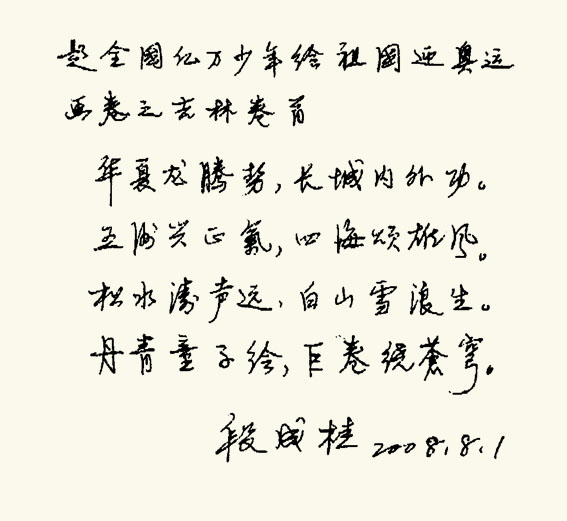 题全國亿万少年绘祖國迎奥运
画卷之吉林卷首
华夏龙腾势，长城内外功。
五洲兴正氣，四海颂雄风。
松水涛声远，白山雪浪生。
丹青童子绘，巨卷绕蒼穹。
段成桂 2008.8.1